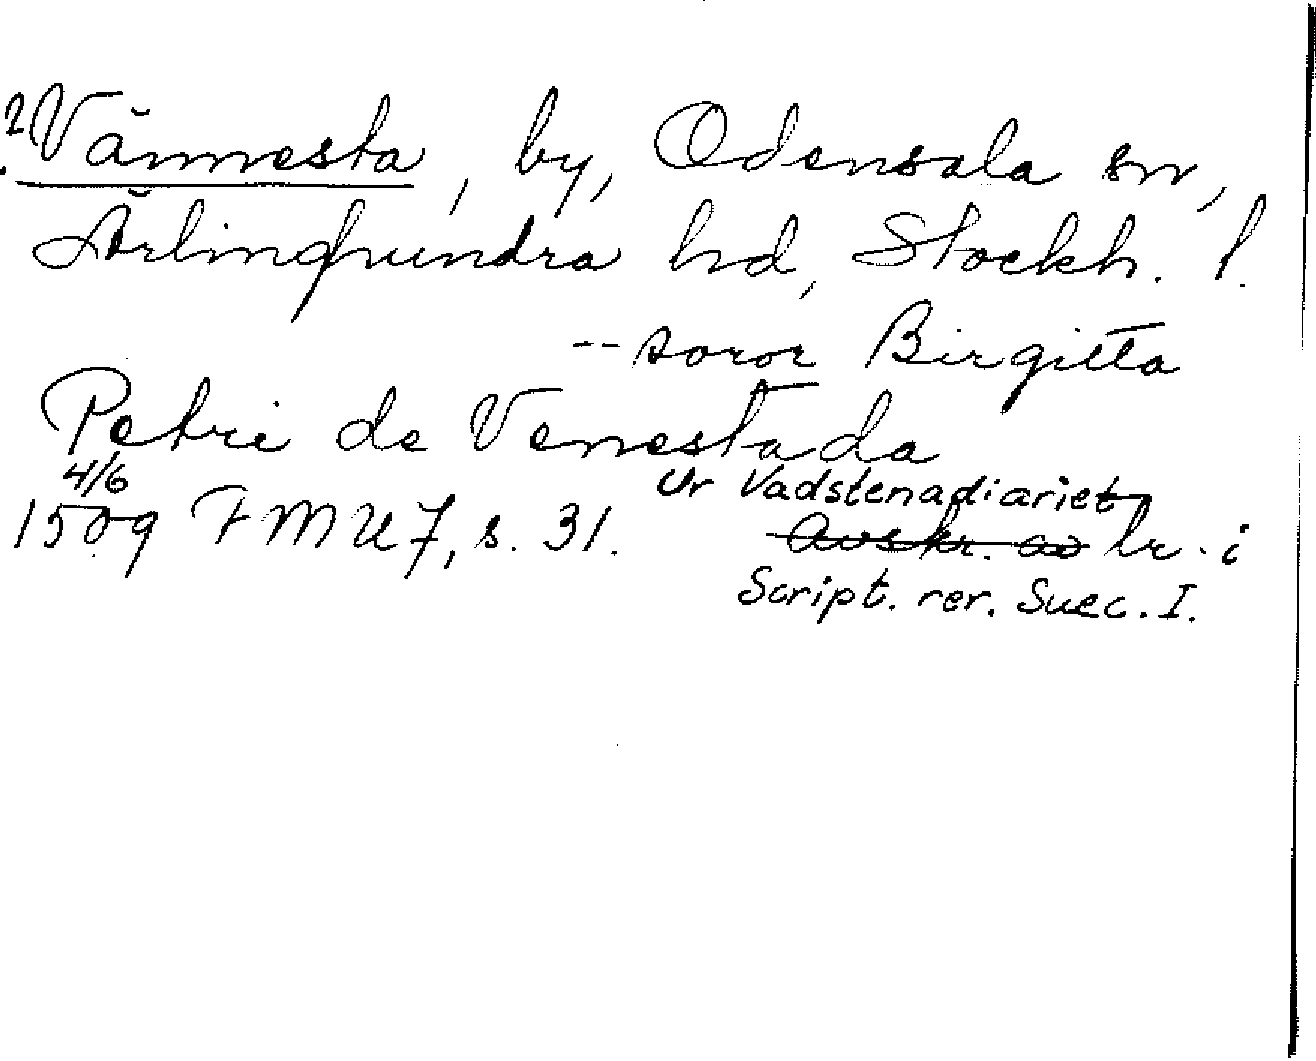 ? Vännesta, by, Odensala sn,
Ärlinghundra hd, Stockh. l.
-- soror Birgitta
Petri de Venestada
4/6 Ur Vadstenadiariet
1509 FMU 7, s. 31. Avskr. av tr. i
Script. rer. Suec. I.